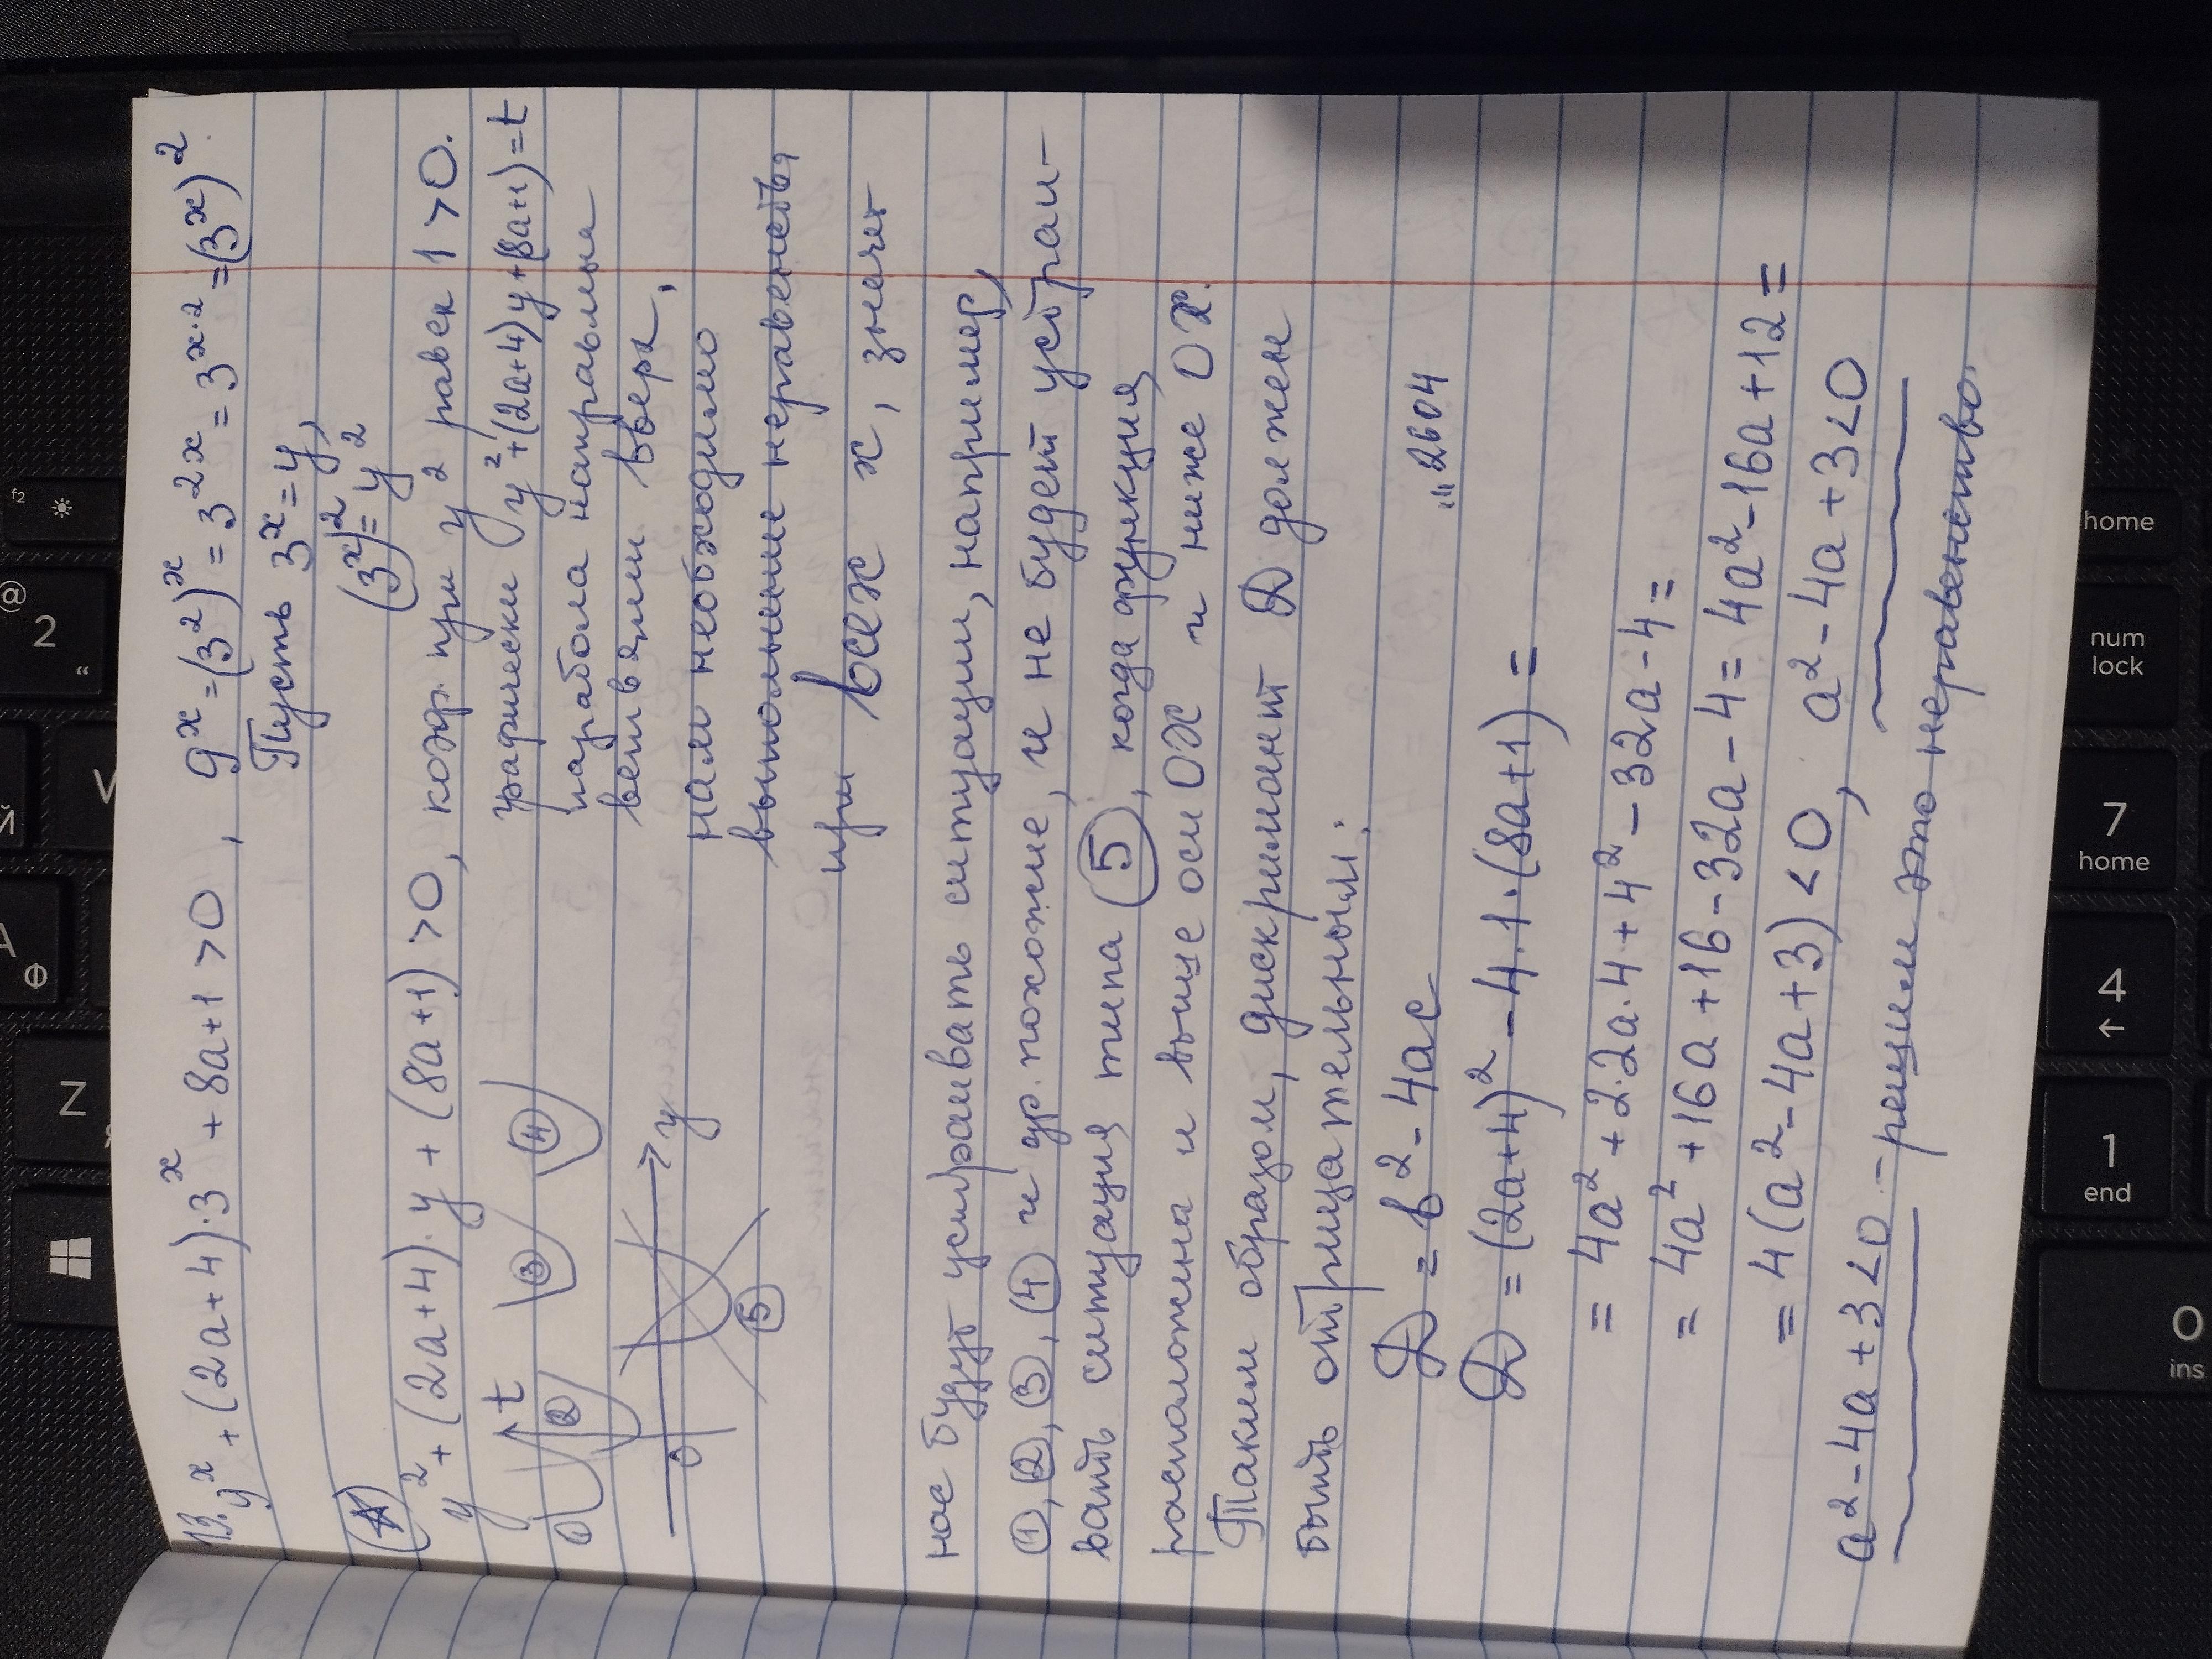 13. 9^x + (2a+4)·3^x + 8a+1 >0 , 9^x = (3^2)^x = 3^2x = 3^x·2 = (3^x)^2.
Пусть 3^x = y,
(3^x)^2 = y^2
(*)
y^2 + (2a+4)·y + (8a+1) >0, коэф. при y^2 равен 1 >0.
графически y^2+(2a+4)y+(8a+1)=t
парабола направлена
ветвями вверх,
y t
① ② ③ ④
0 y
⑤
нам необходимо
выполнение неравенства
при всех x, значит
нас будут устраивать ситуации, например,
①, ②, ③, ④ и др. похожие, и не будет устраи-
вать ситуация типа ⑤, когда функция
расположена и выше оси OX и ниже OX.
Таким образом, дискриминант D должен
быть отрицательным.
D = b^2 - 4ac
"2604
D = (2a+4)^2 - 4·1·(8a+1) =
= 4a^2 + 2·2a·4 + 4^2 - 32a - 4 =
= 4a^2 + 16a + 16 - 32a - 4 = 4a^2 - 16a + 12 =
= 4(a^2 - 4a + 3) < 0, a^2 - 4a + 3 < 0
a^2 - 4a + 3 < 0 - решим это неравенство.
f2
@
2
“
Й
V
А
Ф
Z
Я
home
num
lock
7
home
4
←
1
end
0
ins